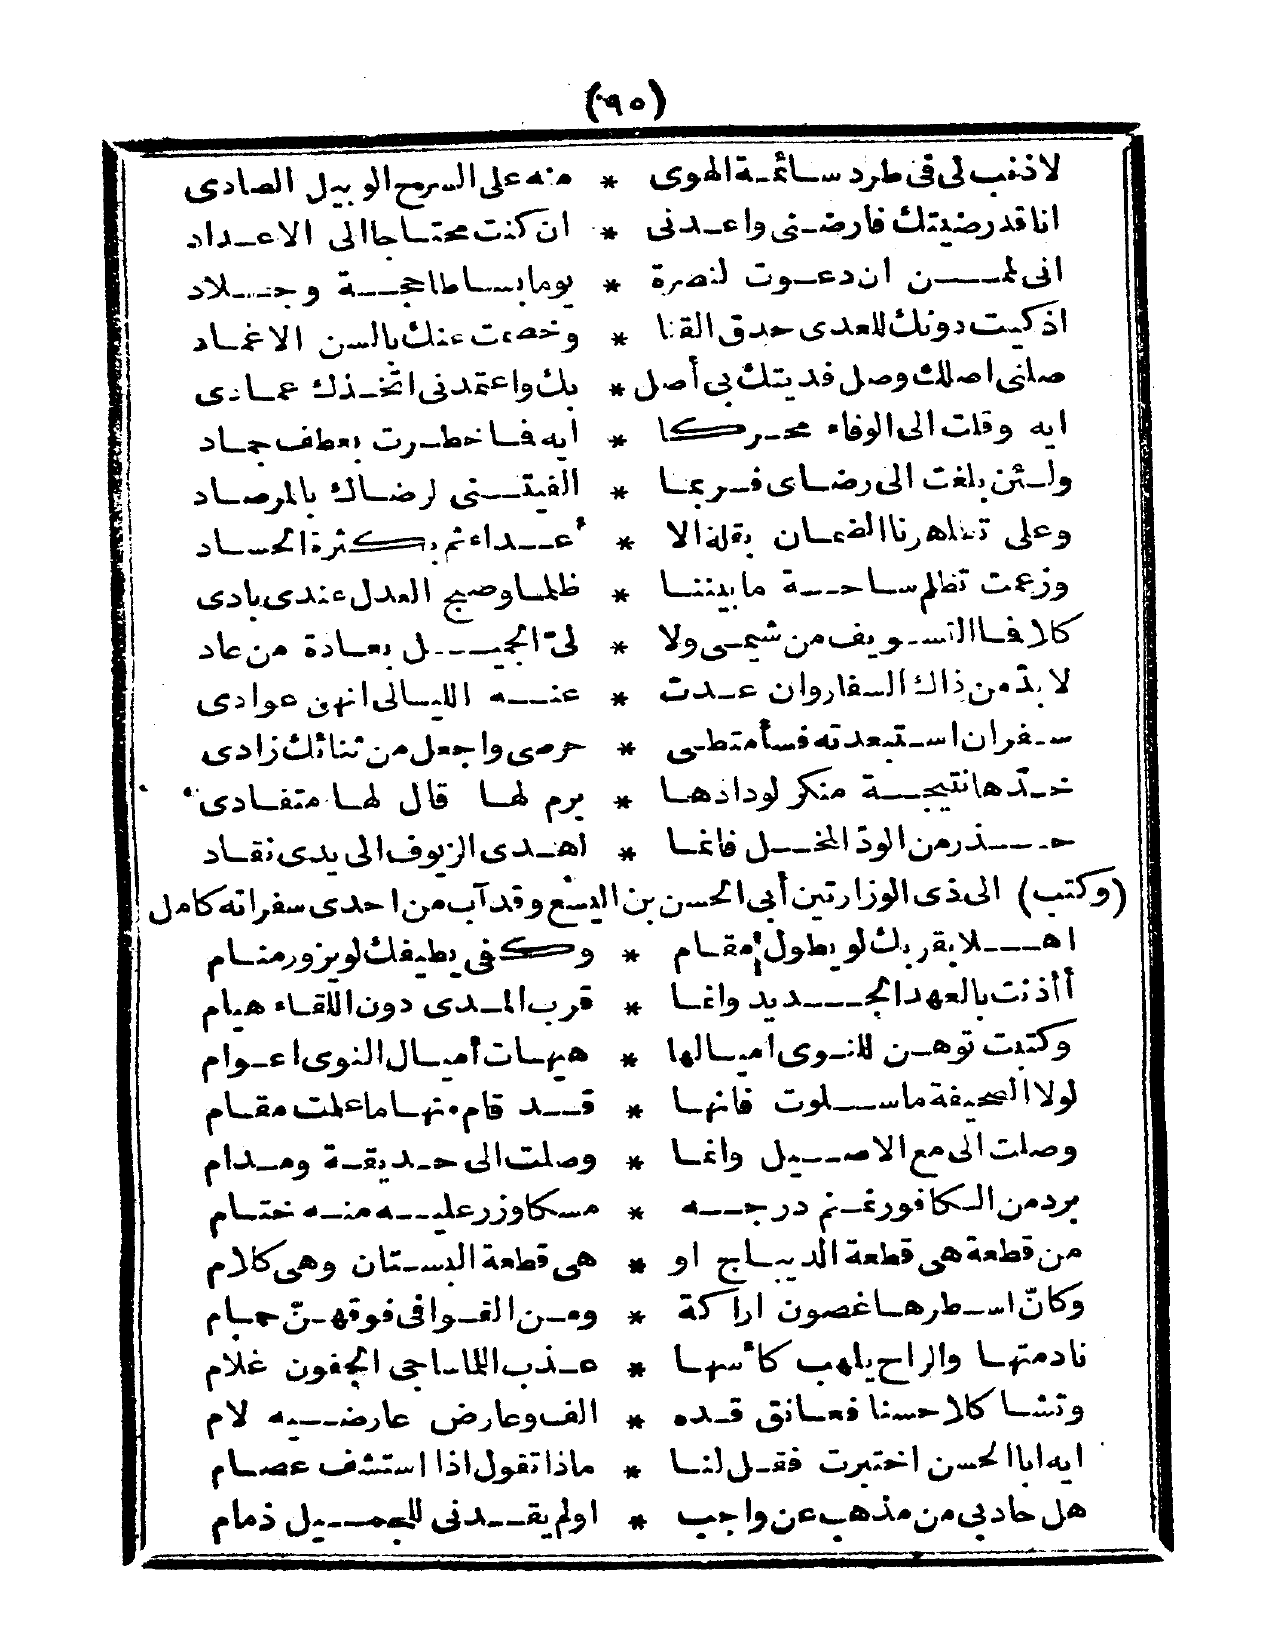 (٩٥)
لا ذنب لى فى طرد سائمة الهوى * منه على السرح الوبيل الصادى
انا قد رضيتك فارضنى واعدنى * ان كنت محتاجا الى الاعداد
انى لمن ان دعوت لنصرة * يوما بساطا حجة وجلاد
اذكيت دونك للعدى حدق القنا * وخصمت عنك بالسن الاغماد
صلنى اصلك وصل فديتك بى أصل * بك واعتمدنى اتخذك عمادى
ايه وقات الى الوفاء محركا * أيه فما خطرت بعطف جماد
ولئن بلغت الى رضاى فربما * الفيتنى لرضاك بالمرصاد
وعلى تظاهرنا الضمان بقلة الا * أعداء ثم بكثرة الحساد
وزعمت تظلم ساحة ما بيننا * ظلما وصبح العدل عندى بادى
كلا فما التسويف من شيمى ولا * لىّ الجميل بعادة من عاد
لا بدّ من ذاك السفار وان عدت * عنه الليالى انهن عوادى
سفر ان استبعدته فسأمتطى * حرصى واجعل من ثنائك زادى
خذها نتيجة منكر لودادها * برم لها قال لها متفادى
حذر من الودّ المخل فانما * اهدى الزيوف الى يدى نقاد
(وكتب) الى ذى الوزارتين أبى الحسن بن اليسع وقد آب من احدى سفراته كامل
اهلا بقربك لو يطول مقام * وكفى بطيفك لو يزور منام
أأذنت بالعهد الجديد وانما * قرب المدى دون اللقاء هيام
وكتبت توهن للنوى اميالها * هيهات أميال النوى اعوام
لولا الصحيفة ما سلوت فانها * قد قام منها ما علمت مقام
وصلت الى مع الاصيل وانما * وصلت الى حديقة ومدام
برد من الكافور غنم درجه * مسكا وزر عليه منه ختام
من قطعة هى قطعة الديباج او * هى قطعة البستان وهى كلام
وكانّ اسطرها غصون اراكة * ومن القوافى فوقهنّ حمام
نادمتها والراح يلهب كأسها * عذب اللما ساجى الجفون غلام
وتشا كلا حسنا فعانق قده * الف وعارض عارضيه لام
ايه ابا الحسن اختبرت فقل لنا * ماذا تقول اذا استشف عصام
هل حاد بى من مذهب عن واجب * اولم يقدنى للجميل ذمام